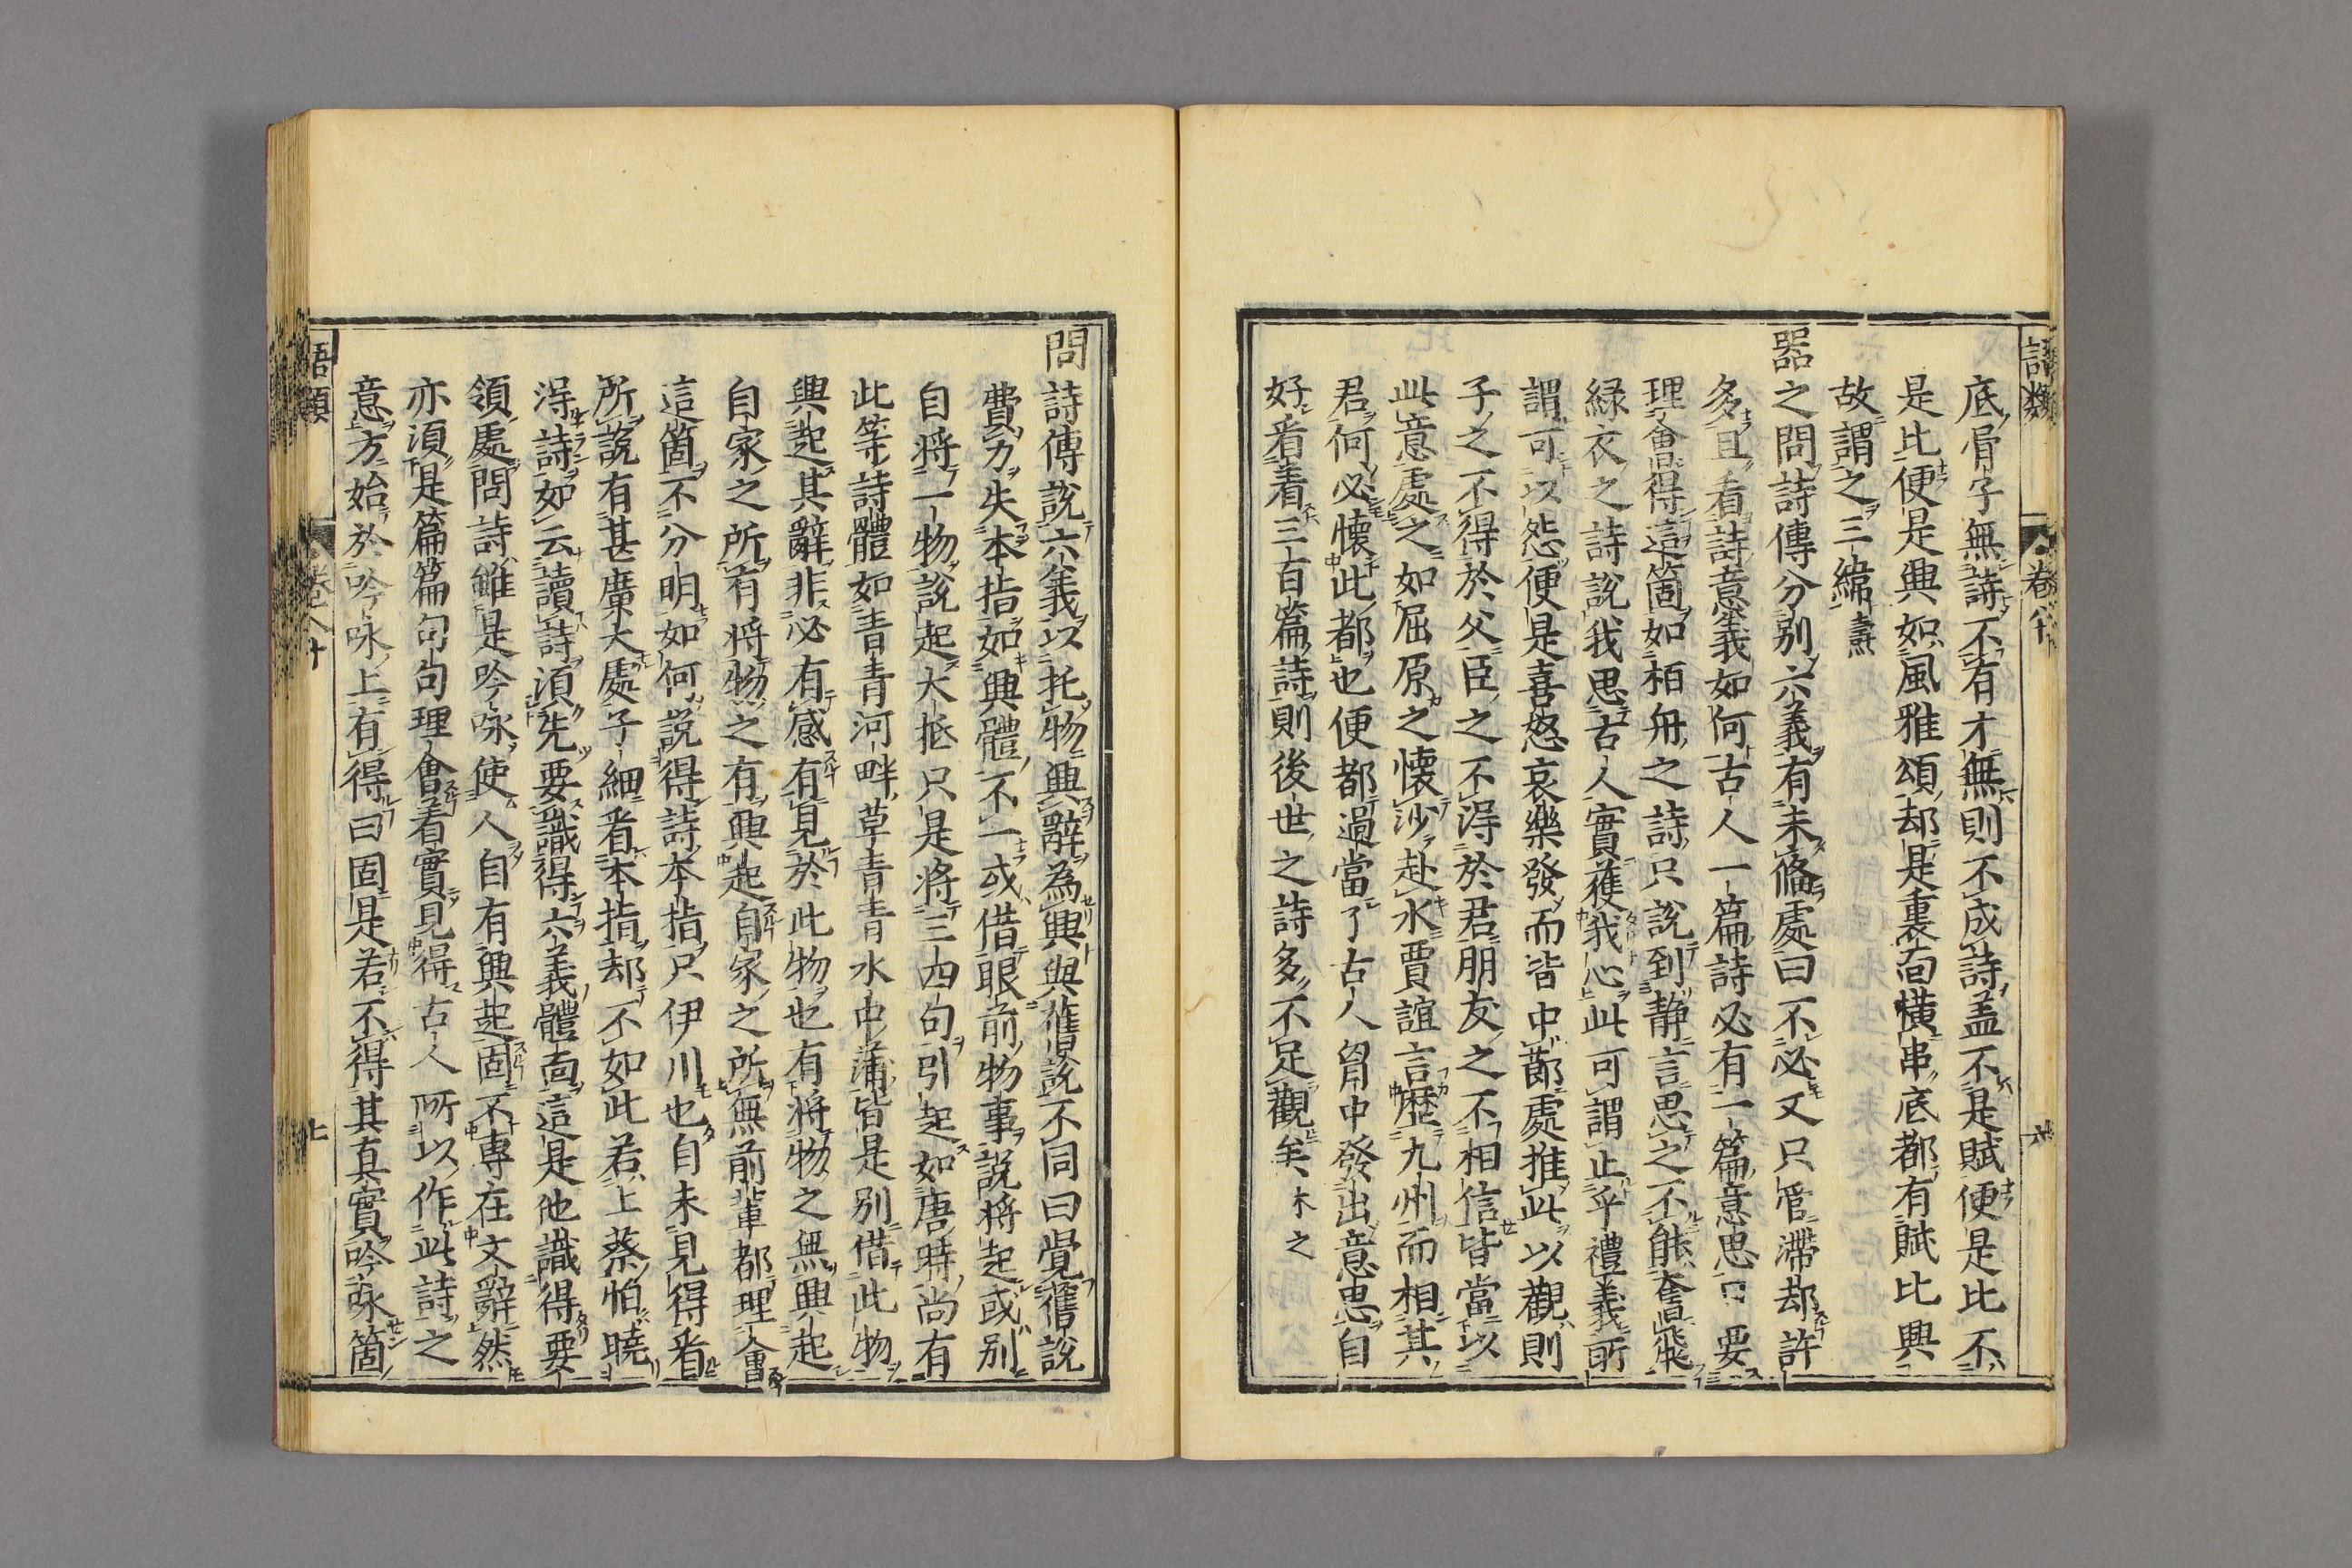 語類
卷八十
六
底骨子無詩不有才無則不成詩盖不是賦便是比不
是比便是興如風雅頌却是裏面橫串底都有賦比興
故謂之三緯燾
器之問詩傳分别六義有未備處曰不必又只管滯却許
多且看詩意義如何古人一篇詩必有一篇意思只要
理會得這箇如栢舟之詩只說到靜言思之不能奮飛
緑衣之詩說我思古人實獲我心此可謂止乎禮義所
謂可以怨便是喜怒哀樂發而皆中節處推此以觀則
子之不得於父臣之不得於君朋友之不相信皆當以
此意處之如屈原之懷沙赴水賈誼言歷九州而相其
君何必懷此都也便都過當了古人胷中發出意思自
好看着三百篇詩則後世之詩多不足觀矣木之
問詩傳說六義以托物興辭為興與舊說不同曰覺舊說
費力失本指如興體不一或借眼前物事說將起或别
自將一物說起大抵只是將三四句引起如唐時尚有
此等詩體如青青河畔草青青水中蒲皆是别借此物
興起其辭非必有感有見於此物也有將物之無興起
自家之所有將物之有興起自家之所無前輩都理會
這箇不分明如何說得詩本指只伊川也自未見得看
所說有甚廣大處子細看本指却不如此若上蔡怕曉
得詩如云讀詩須先要識得六義體面這是他識得要
領處問詩雖是吟咏使人自有興起固不專在文辭然
亦須是篇篇句句理會着實見得古人所以作此詩之
意方始於吟咏上有得曰固是若不得其真實吟咏箇
語類
卷八十
七